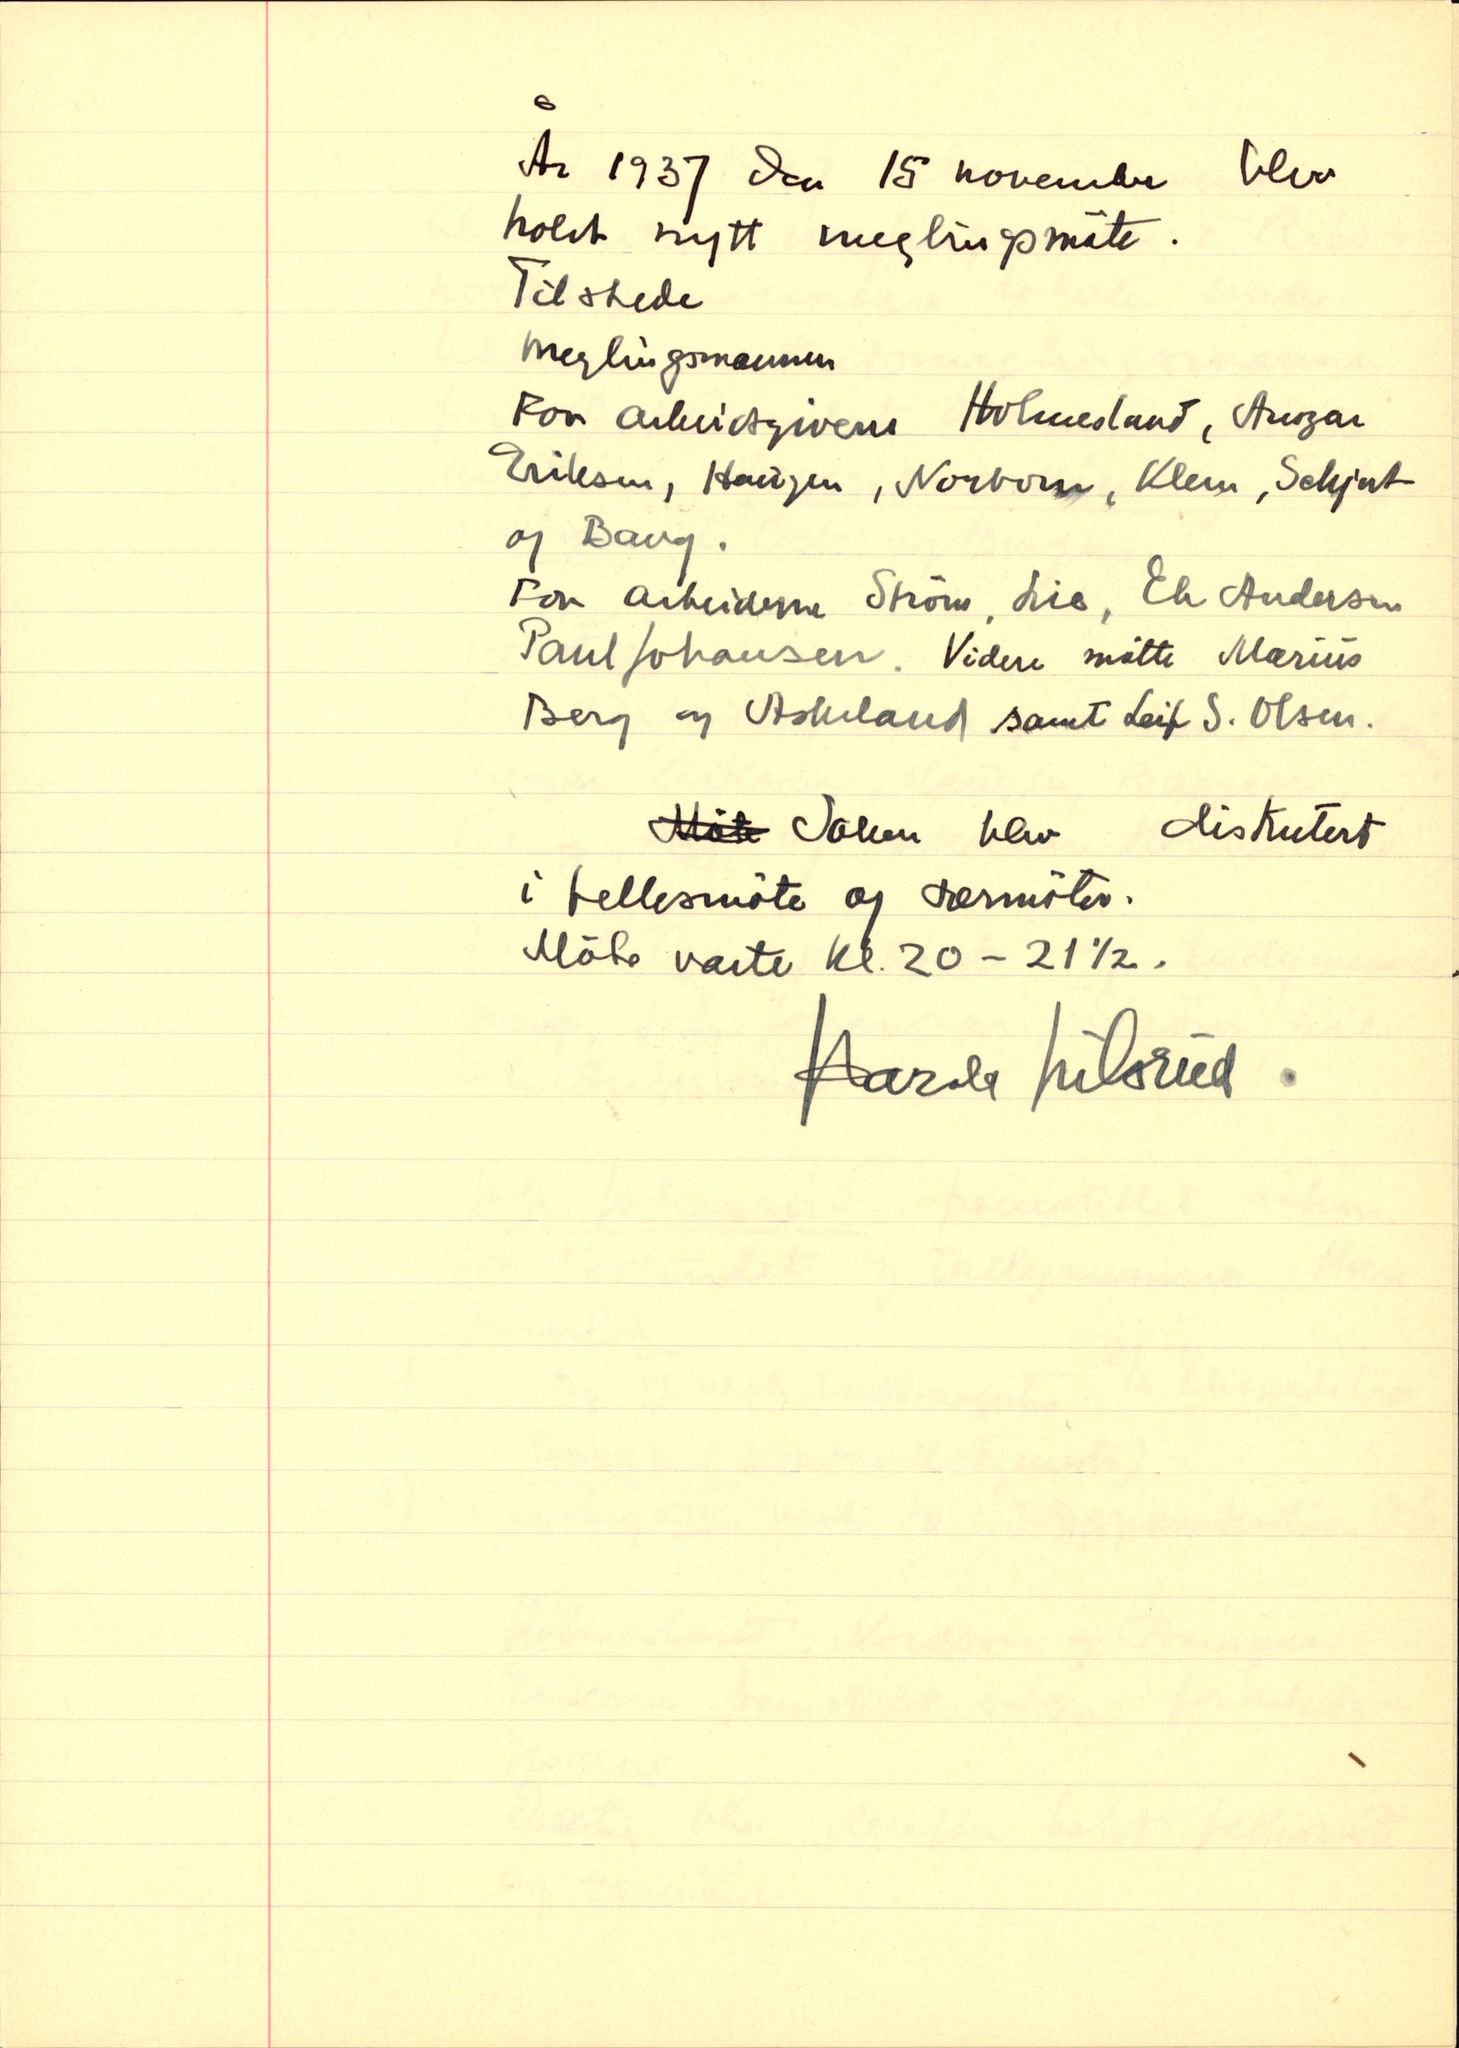 År 1937 den 15 november blev
holdt nytt meglingsmöte.
Tilstede
Meglingsmannen
For arbeidsgiverne Holmesland, Ansgar
Eriksen, Haugen, Norbom, Klem, Schjøt
og Baug.
For arbeiderne Ström, Lie, Eh Andersen
Paul Johansen. Videre mötte Marius
Berg og Askeland samt Leif S. Olsen.
Möte Saken blev diskutert
i fellesmöte og særmöter.
Möte varte kl. 20 - 21 1/2.
Harald